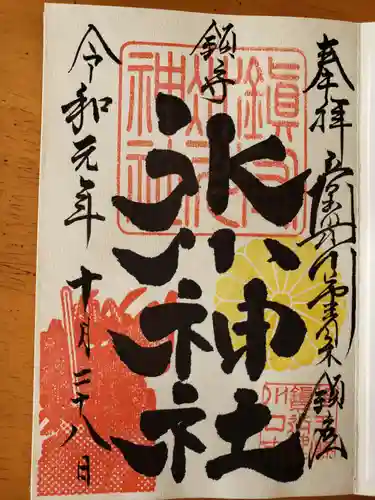 奉拝
鎮座
鎮守
氷川神社
鎮守氷川神社
令和元年十月二十八日